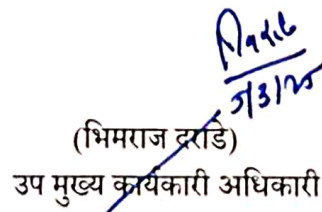 5/3/25
(भिमराज दराडे)
उप मुख्य कार्यकारी अधिकारी